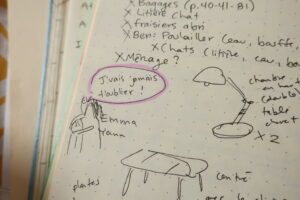 X Bagages (p.40-41-B1)
X Litière Chat
X fraisiers abri
X Ben: Poulailler (eau, bouffe
X Chats (litière, eau, bou
X Ménage ?
J'vais jamais
t'oublier !
chambre
en haut
table
chevet
X 2
Emma
Yann
plantes
centre